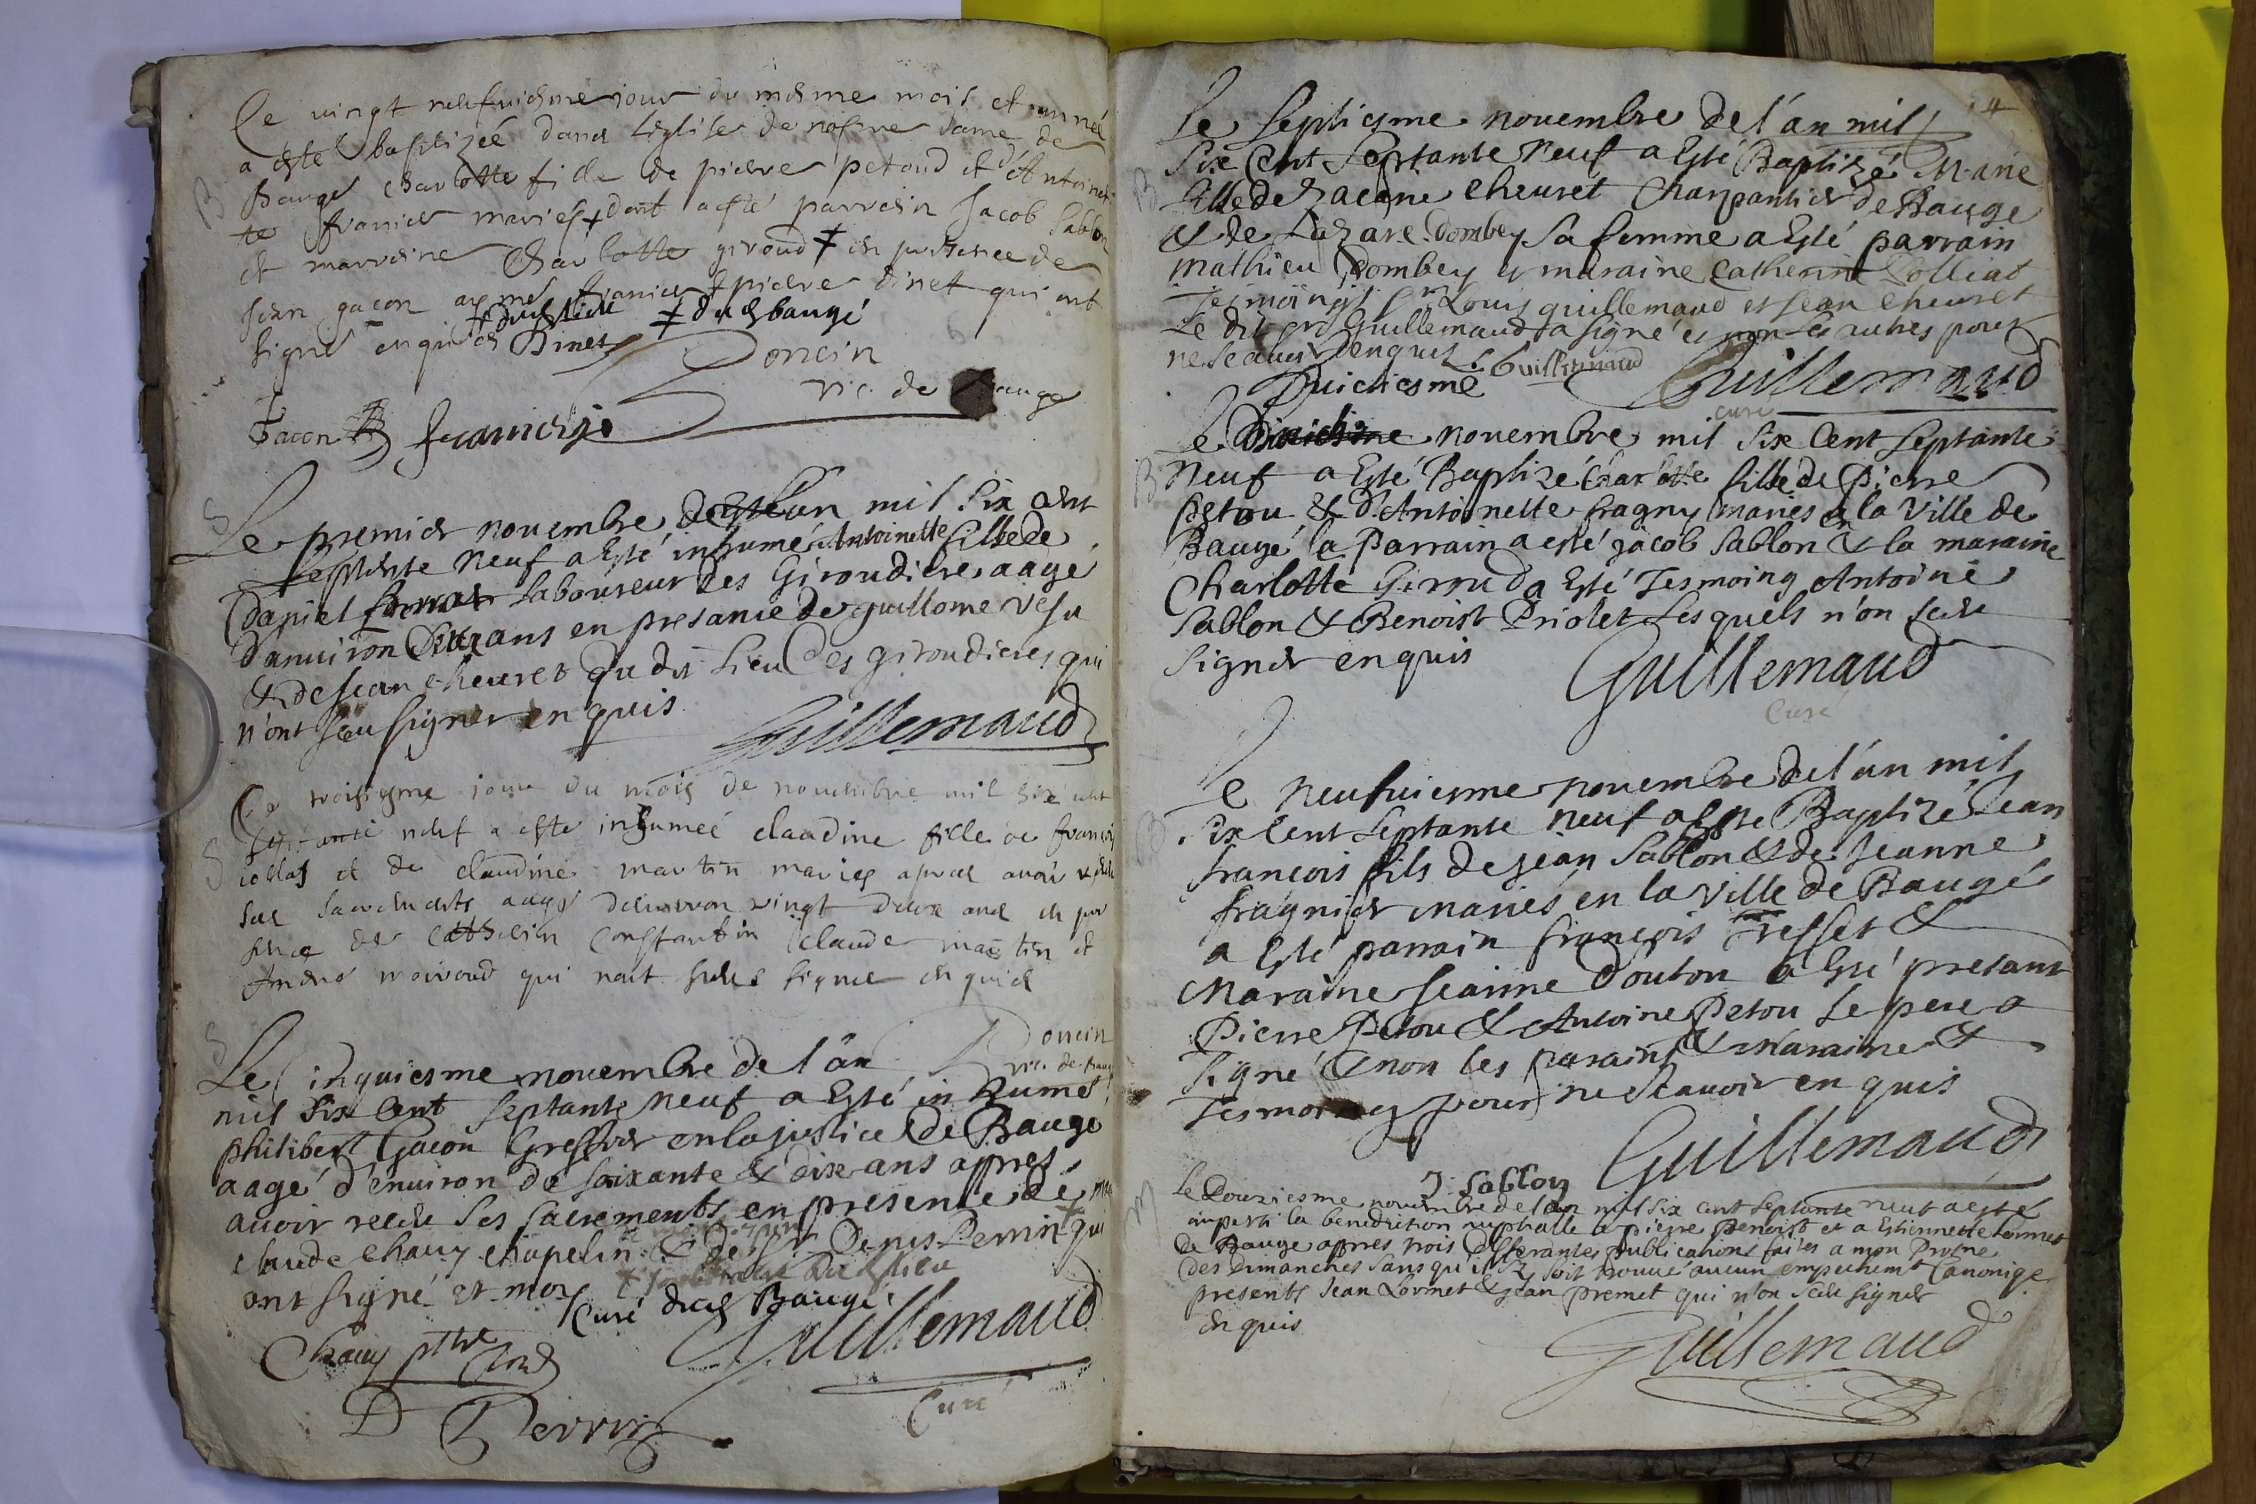 Ce vingt neufuiesme iour du mesme mois et année
a esté baptizée dans leglise de nostre dame de
B
Baugé charlotte fille de pierre petoud et d'Antoinet
te franier mariés dont a esté parrain Jacob Sablon
et marraine Charlotte giroud en presence de
Jean gacon aymé franier pierre dinet qui ont
signé enquis Dinet
dudit lieu
dud baugé
Doncin
vic. de Bauge
Gacon franier
S
Le premier nouembre de l'an mil six cent
septente neuf a Esté inhumé Antoinette fille de
Daniel laboureur des Giroudieres aagé
d'anuiron ans en presance de guillome
& de Jean cheuret du dit lieu des giroudieres qui
n'ont sceu signer enquis
Guillemaud
Ce troisiesme iour du mois de nouembre mil six cent
S
septante neuf a esté inhumeé claudine fille de françoi
collas et de claudine martin mariés apres auoir
ses sacrements aagé denuiron vingt deux ans en pre
sence de Constantin claude martin et
André moiroud qui nont sceu signer enquis
Doncin
vic. de Baug
S
Le cinquiesme nouembre de l'an
mil six cent septante neuf a Esté inhumé
philibert Gacon Greffier en la justice de Bauge
aagé d'enuiron de soixante & dix ans appres
auoir receu ses sacrements en presence de
claude chauy chapelin & de Sr Denis Perrin qui
ont signé et moy
Curé dud Baugé
Chauy ptre
Guillemaud
Curé
D Perrin
4
Le septiesme nouembre de l'an mil
Six Cent septante neuf a Esté Baptizé Marie
B
fille de Zacarie cheuret charpantier de Bauge
& de Lazare Dombey sa femme a Esté parrain
mathieu Dombey & maraine Catherine Lolliat
Tesmoings Louis guillemaud et Jean cheuret
Le dit Guillemaud a signé et non les autres pour
ne scauoir enquis L Guillemaud
Guillemaud
curé
huictiesme
Le nouembre mil six Cent septante
B
neuf a Esté Baptizé Charlotte fille de Pierre
petou & d'Antoinette fragny mariés en la Ville de
Baugé la Parrain a esté jacob Sablon & la maraine
Charlotte Giroud a Esté Tesmoing Antoine
Sablon & Benoist Priolet Lesquels n'on sceu
signer enquis
Guillemaud
Curé
Le neufuiesme nouembre de l'an mil
B
six Cent septante neuf a Este Baptizé Jean
françois fils de jean Sablon & de Jeanne
fragnier mariés en la Ville de Baugé
a Esté parrain françois Tresset &
Maraine Jeanne Douton a Esté presant
Pierre Petou & Antoine Petou Le pere a
signé & non les parains & maraine &
Tesmoings pour ne scauoir enquis
Guillemaud
J. Sablon
M
Le Douziesme nouembre de l'an mil six cent septante neuf a este
imparti la benediction nuptialle a pierre Benoist et a Estiennette Lormet
de Bauge appres trois differantes publications faites a mon Prosne
des dimanches sans qu'il sy soit trouué aucun empechemt Canoniqe
presents Jean Lormet & Jean premet qui n'on sceu signer
enquis
Guillemaud